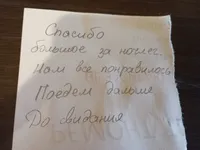 Спасибо
большое за ночлег.
Нам все понравилось
Поедем дальше
До свидания